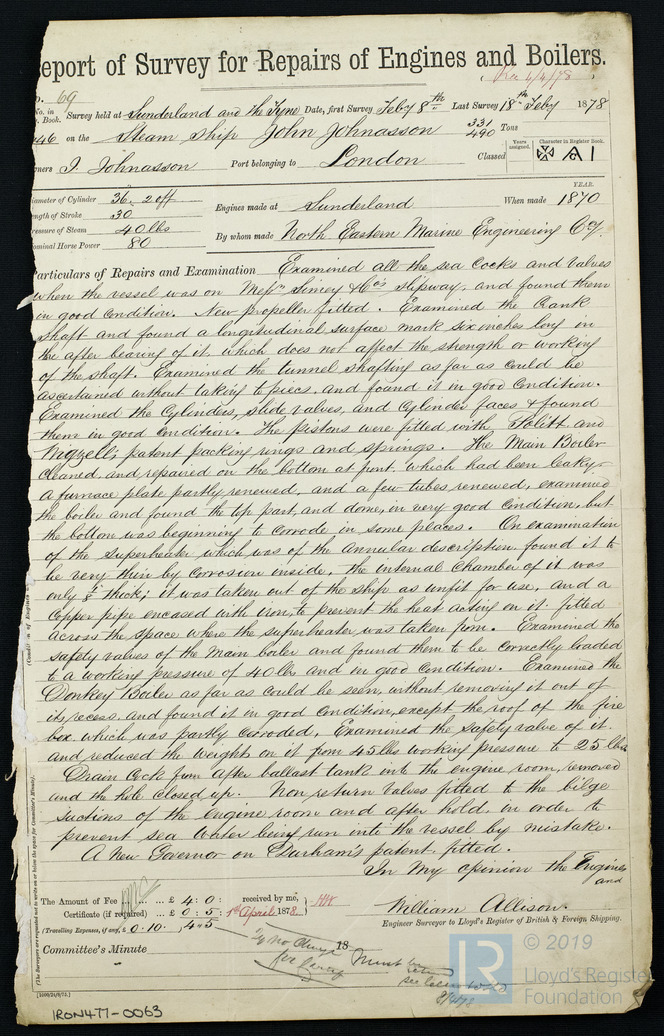 eport of Survey for Repairs of Engines and Boilers.
Rec 4/4/78
o. 69
No. in Book. Survey held at Sunderland and the Tyne Date, first Survey Feby 8th Last Survey 18th Feby 1878
446 on the Steam Ship John Johnasson 331 490 Tons
Years assigned. Character in Register Book.
Classed A 1
wners I. Johnasson Port belonging to London
iameter of Cylinder 36. 2 off
ength of Stroke 30
ressure of Steam 40 lbs
ominal Horse Power 80
YEAR.
Engines made at Sunderland When made 1870
By whom made North Eastern Marine Engineering Coy.
articulars of Repairs and Examination Examined all the sea Cocks and valves
when the vessel was on Messrs Simey & Co's slipway, and found them
in good Condition. New propeller fitted. Examined the Crank
shaft and found a longitudinal surface mark six inches long in
the after bearing of it, which does not affect the strength or working
of the shaft. Examined the tunnel shafting as far as could be
ascertained without taking to piecs, and found it in good condition.
Examined the Cylinders, slide valves, and Cylinder faces & found
them in good Condition. The pistons were fitted with Politt and
Wigzell patent packing rings and springs. The Main Boiler
cleaned and repaired on the bottom at front which had been leaky,
a furnace plate partly renewed, and a few tubes renewed, examined
the boiler and found the top part, and dome, in very good Condition, but
the bottom was beginning to corrode in some places. On examination
of the superheater which was of the annular description found it to
be very thin by corrosion inside, the internal Chamber of it was
only thick; it was taken out of the ship as unfit for use, and a
Copper pipe encased with iron, to prevent the heat acting on it, fitted
across the space where the superheater was taken from. Examined the
safety valves of the Main boiler and found them to be correctly loaded
to a working pressure of 40 lbs and in good Condition. Examined the
Donkey Boiler as far as could be seen, without removing it out of
its recess, and found it in good Condition, except the roof of the fire
box which was partly corroded, Examined the safety valve of it
and reduced the weight on it from 45 lbs working pressure to 25 lbs
Drain Cock from after ballast tank into the engine room, removed
and the hole closed up. Non return valves fitted to the bilge
suctions of the engine room and after hold, in order to
prevent sea water being run into the vessel by mistake.
A new Governor on Durham's patent, fitted.
In My opinion the Engines
and
The Amount of Fee ... ... £ 4 : 0 : received by me, HK
Certificate (if required) ... £ 0 : 5 : 1st April 1878
(Travelling Expenses, if any, £ 0.10. ) 4 5
William Allison.
Engineer Surveyor to Lloyd's Register of British & Foreign Shipping.
Committee's Minute 18
no charge
for
Must
see
9/4/78
(The Surveyors are requested not to write on or below the space for Committee's Minute).
IRON477-0063
© 2019
Lloyd's Register
Foundation
LR